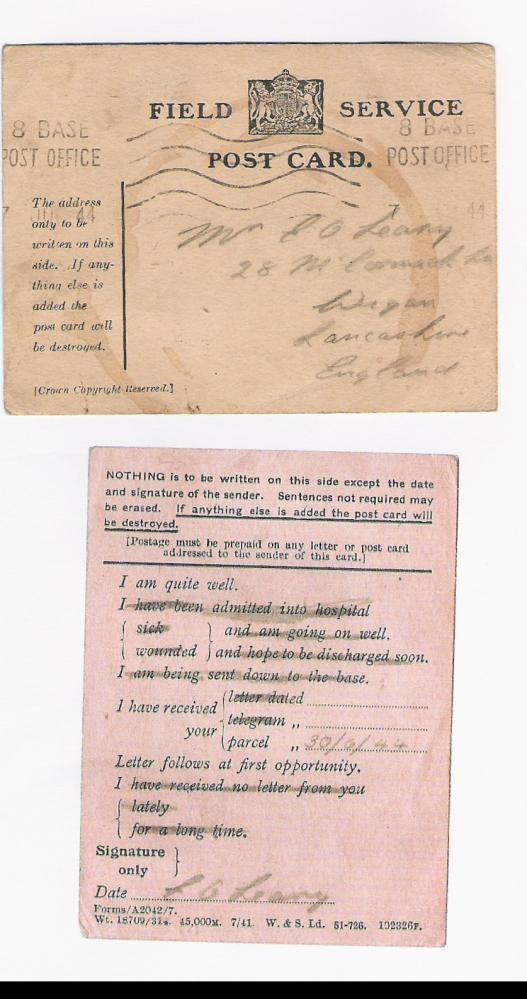 FIELD SERVICE
POST CARD.
8 BASE
POST OFFICE
8 BASE
POST OFFICE
7 JU 44
7 44
The address
only to be
written on this
side. If any-
thing else is
added the
post card will
be destroyed.
[Crown Copyright Reserved.]
Mr E O Leary
28 McCormack
Wigan
Lancashire
England
NOTHING is to be written on this side except the date
and signature of the sender. Sentences not required may
be erased. If anything else is added the post card will
be destroyed.
[Postage must be prepaid on any letter or post card
addressed to the sender of this card.]
I am quite well.
I have been admitted into hospital
{ sick } and am going on well.
{ wounded } and hope to be discharged soon.
I am being sent down to the base.
I have received your
{ letter dated
telegram „
parcel „ 30/ /44
Letter follows at first opportunity.
I have received no letter from you
{ lately
for a long time.
Signature
only }
Date
O Leary
Forms/A2042/7.
Wt. 18709/314. 45,000M. 7/41. W. & S. Ld. 51-726. 102326F.